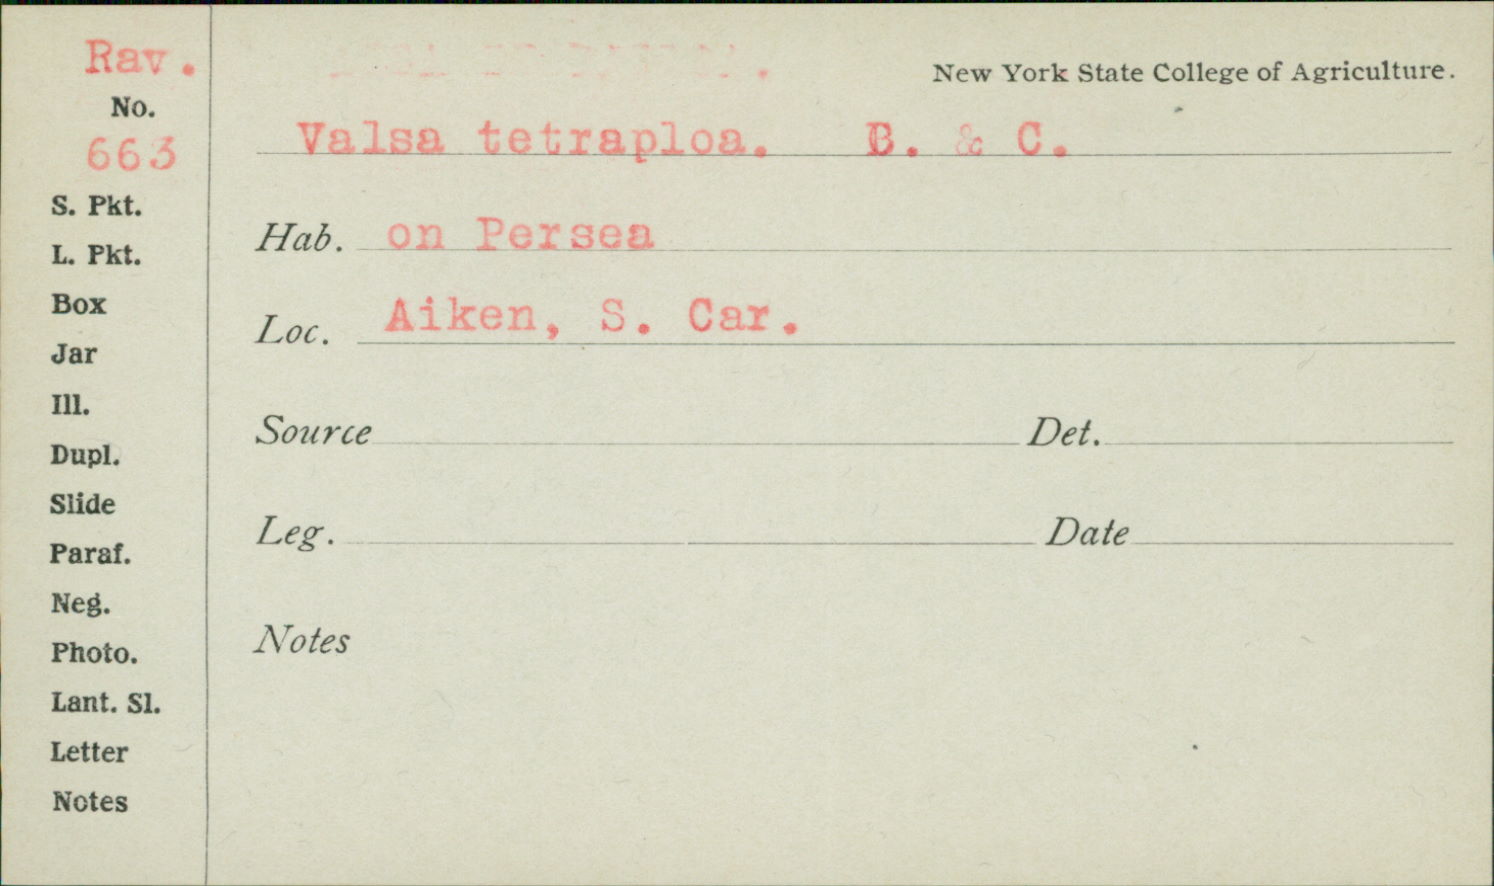 Rav.
No.
663
S. Pkt.
L. Pkt.
Box
Jar
Ill.
Dupl.
Slide
Paraf.
Neg.
Photo.
Lant. Sl.
Letter
Notes
New York State College of Agriculture.
Valsa tetraploa. B. & C.
Hab. on Persea
Loc. Aiken, S. Car.
Source Det.
Leg. Date
Notes